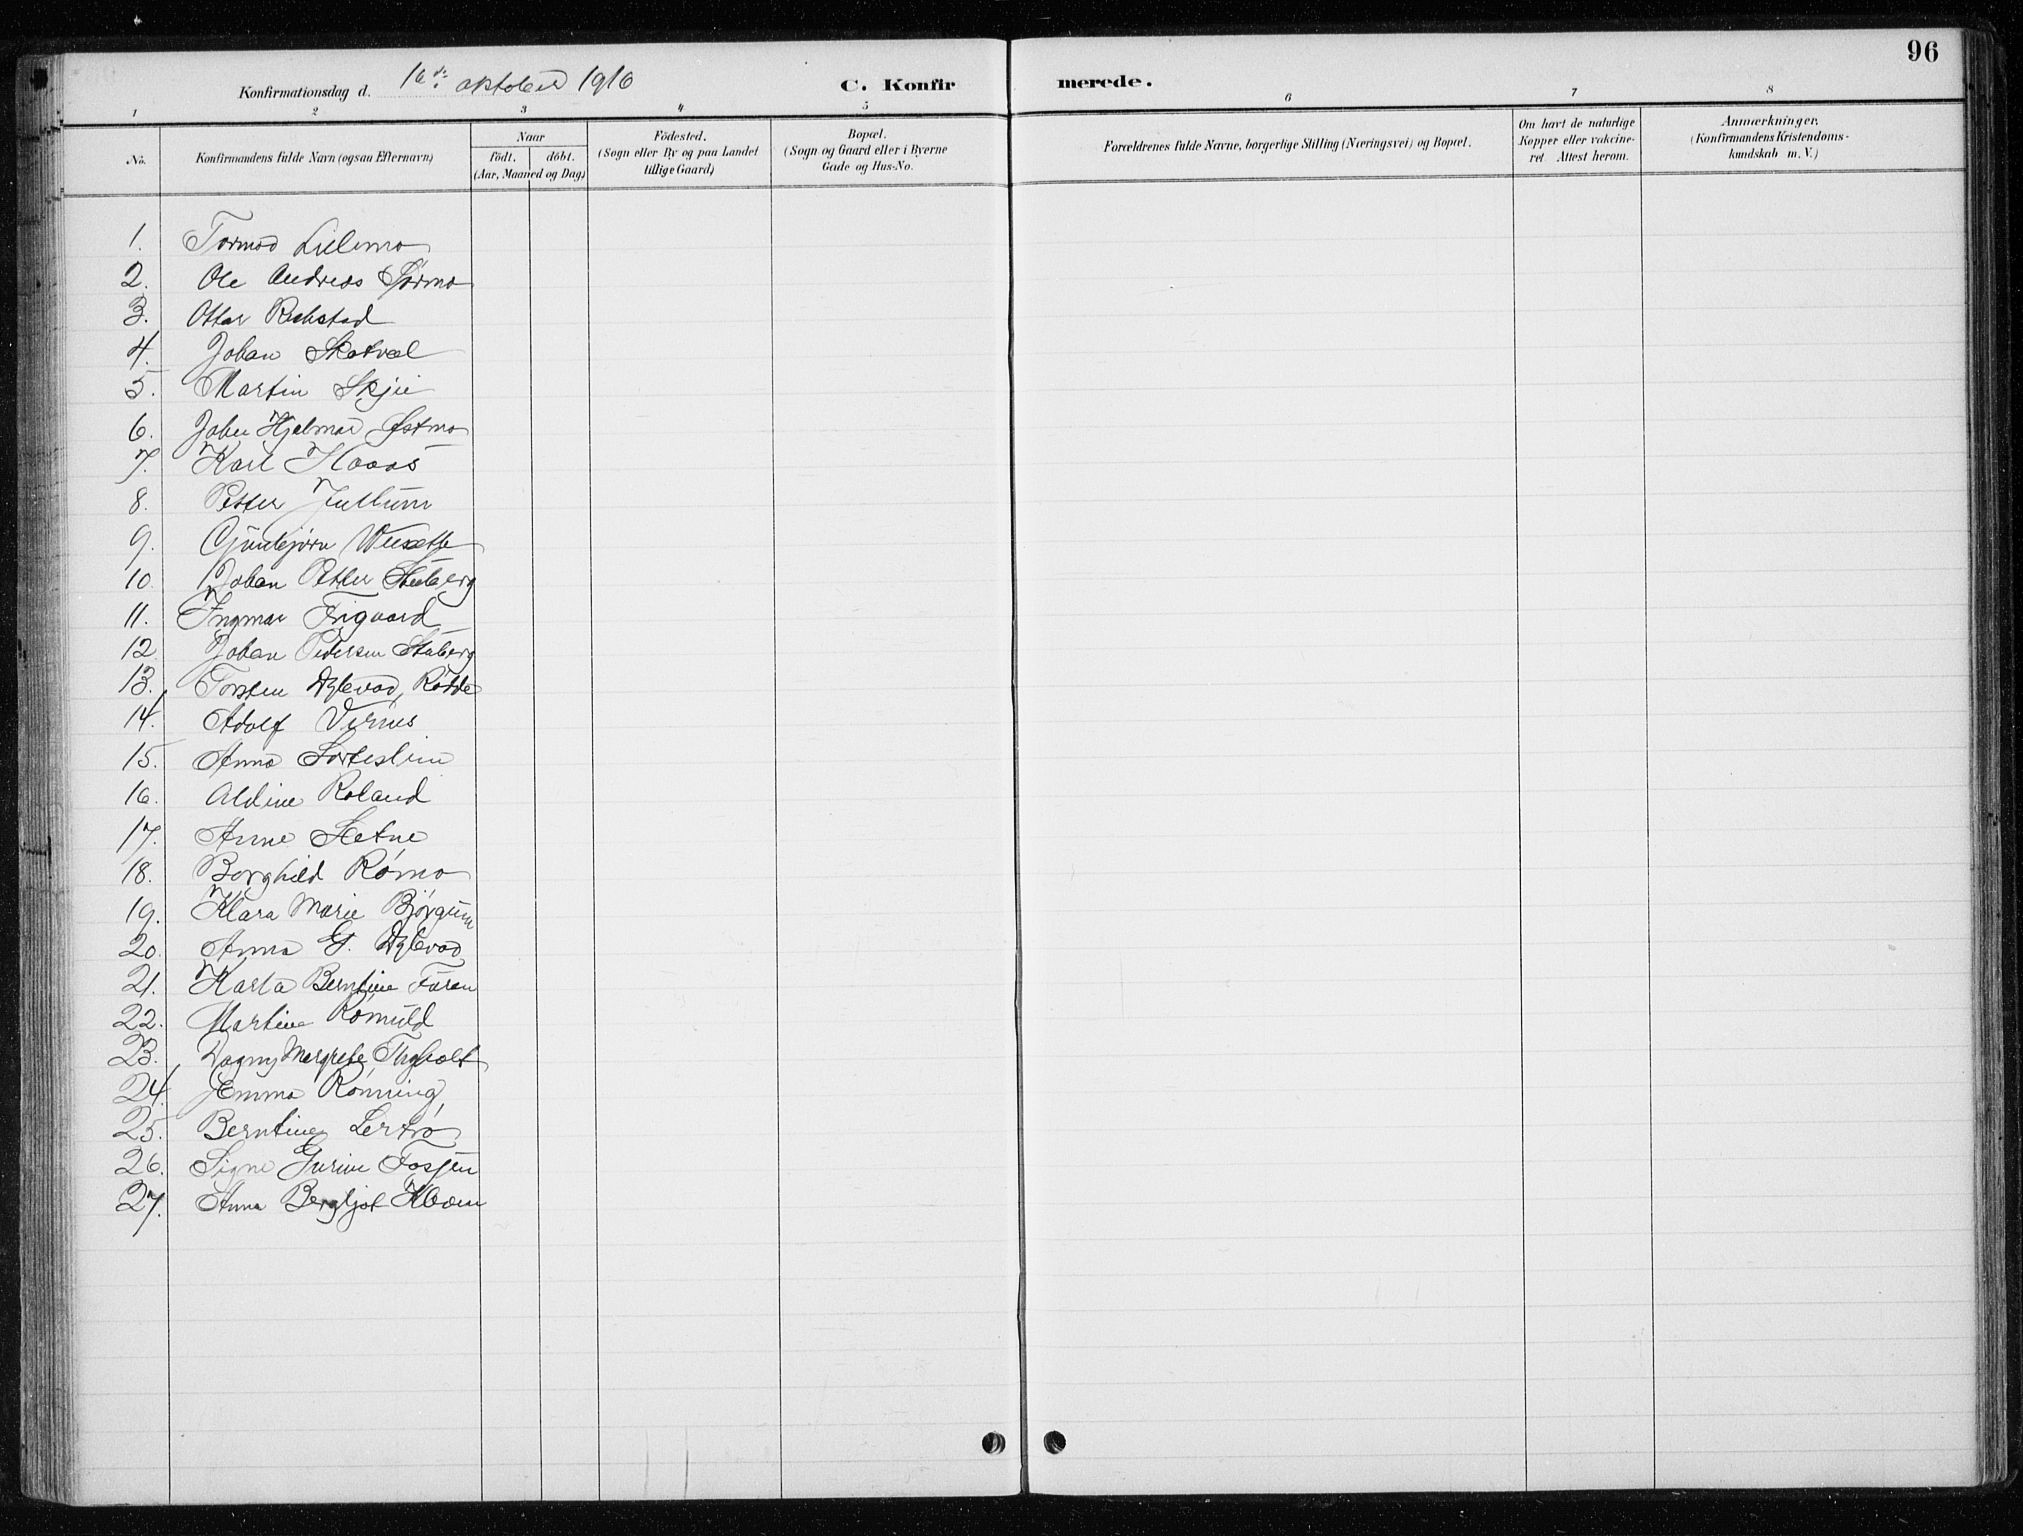 96
Konfirmationsdag d. 16de oktober 1916 C. Konfirmerede.
1 2 3 4 5 6 7 8
No.
Konfirmandens fulde Navn (ogsaa Efternavn)
Naar
födt. döbt.
(Aar, Maaned og Dag)
Födested.
(Sogn eller By og paa Landet
tillige Gaard)
Bopæl.
(Sogn og Gaard eller i Byerne
Gade og Hus-No.
Forældrenes fulde Navne, borgerlige Stilling (Næringsvei) og Bopæl.
Om havt de naturlige
Kopper eller vakcine-
ret Attest herom.
Anmærkninger.
(Konfirmandens Kristendoms-
kundskab m. V.)
1. Tormod Lillemo
2. Ole Andreas Sørmo
3. Ottar Rekstad
4. Johan Skatval
5. Martin Skjei
6. Johan Hjelmar Østmo
7. Karl Haaas
8. Petter Jullum
9. Gunbjørn
10. Johan Petter Stuberg
11. Ingmar Frigaard
12. Johan Pedersen Stuberg
13. Torsten Dyblevad, Rødde
14. Adolf Vernes
15. Anna
16. Aldine Roland
17. Anne Setne
18. Borghild Rømo
19. Klara Marie Bjørgum
20. Anna G. Dyblevad
21. Karla Berntine Faren
22. Martine Rømuld
23. Dagny Margrete Thyholt
24. Emma Rønning
25. Berntine Lertrø
26. Signe Gurine Fosjen
27. Anna Bergljot Kvam